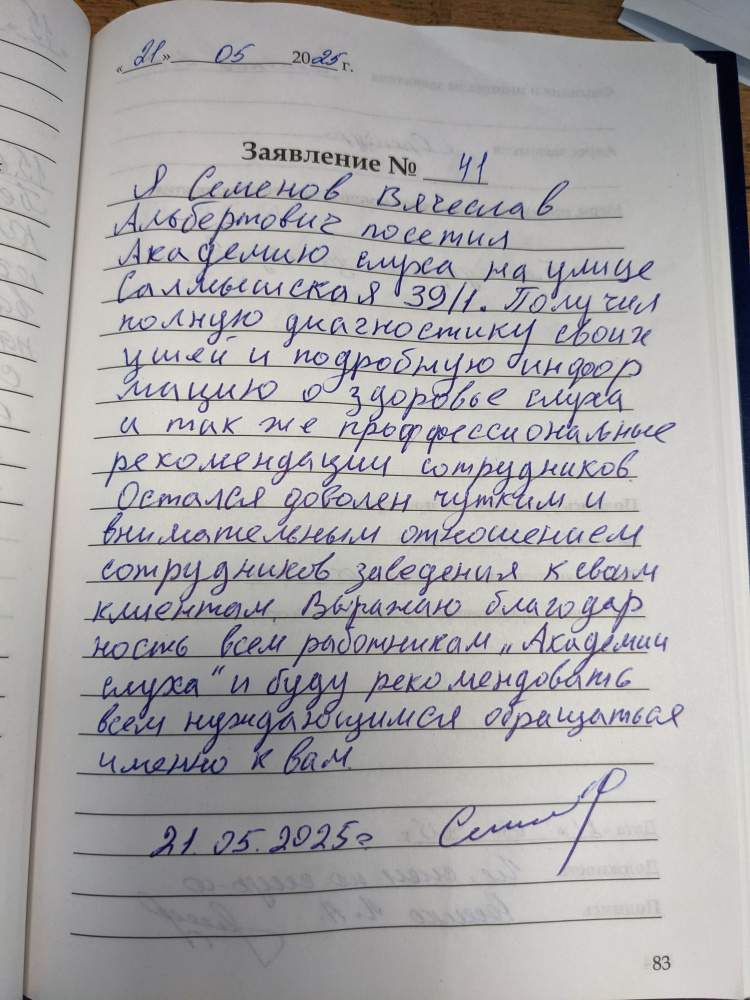 «21» 05 2025 г.
Заявление № 41
Я Семенов Вячеслав
Альбертович посетил
Академию слуха на улице
Салмышская 39/1. Получил
полную диагностику своих
ушей и подробную инфор
мацию о здоровье слуха
и так же проффессиональные
рекомендации сотрудников.
Остался доволен чутким и
внимательным отношением
сотрудников заведения к своим
клиентам. Выражаю благодар
ность всем работникам „Академии
слуха“ и буду рекомендовать
всем нуждающимся обращаться
именно к вам.
21.05.2025г
83